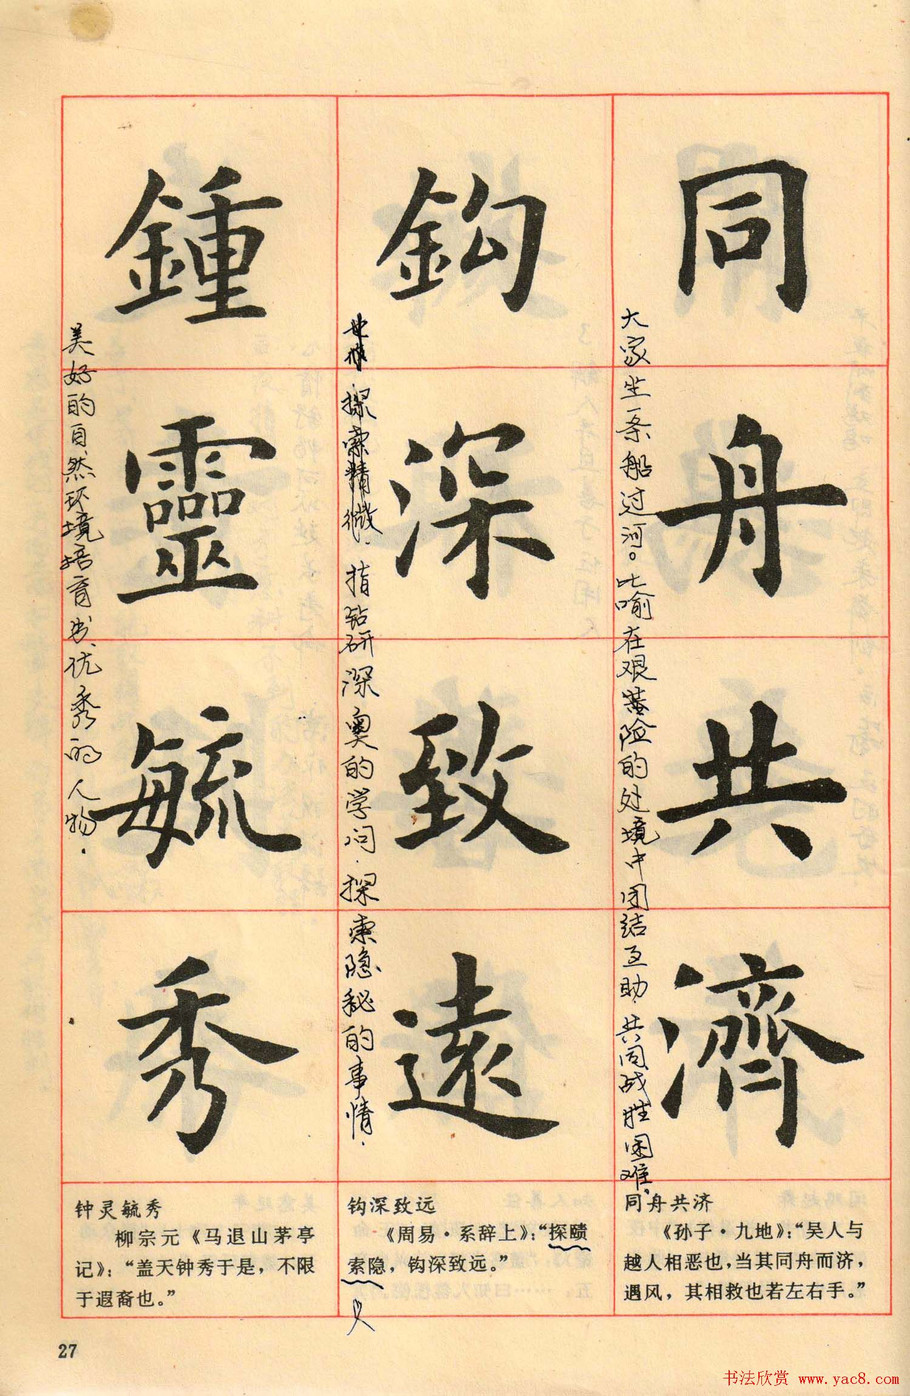 同舟共濟
大家坐一条船过河。比喻在艰险的处境中团结互助，共同战胜困难。
鈎深致遠
探索精微．指钻研深奥的学问．探索隐秘的事情．
鍾靈毓秀
美好的自然环境培育出优秀的人物．
同舟共济
《孙子·九地》：“吴人与
越人相恶也，当其同舟而济，
遇风，其相救也若左右手。”
钩深致远
《周易·系辞上》：“探赜
索隐，钩深致远。”
钟灵毓秀
柳宗元《马退山茅亭
记》：“盖天钟秀于是，不限
于遐裔也。”
27
书法欣赏 www.yac8.com